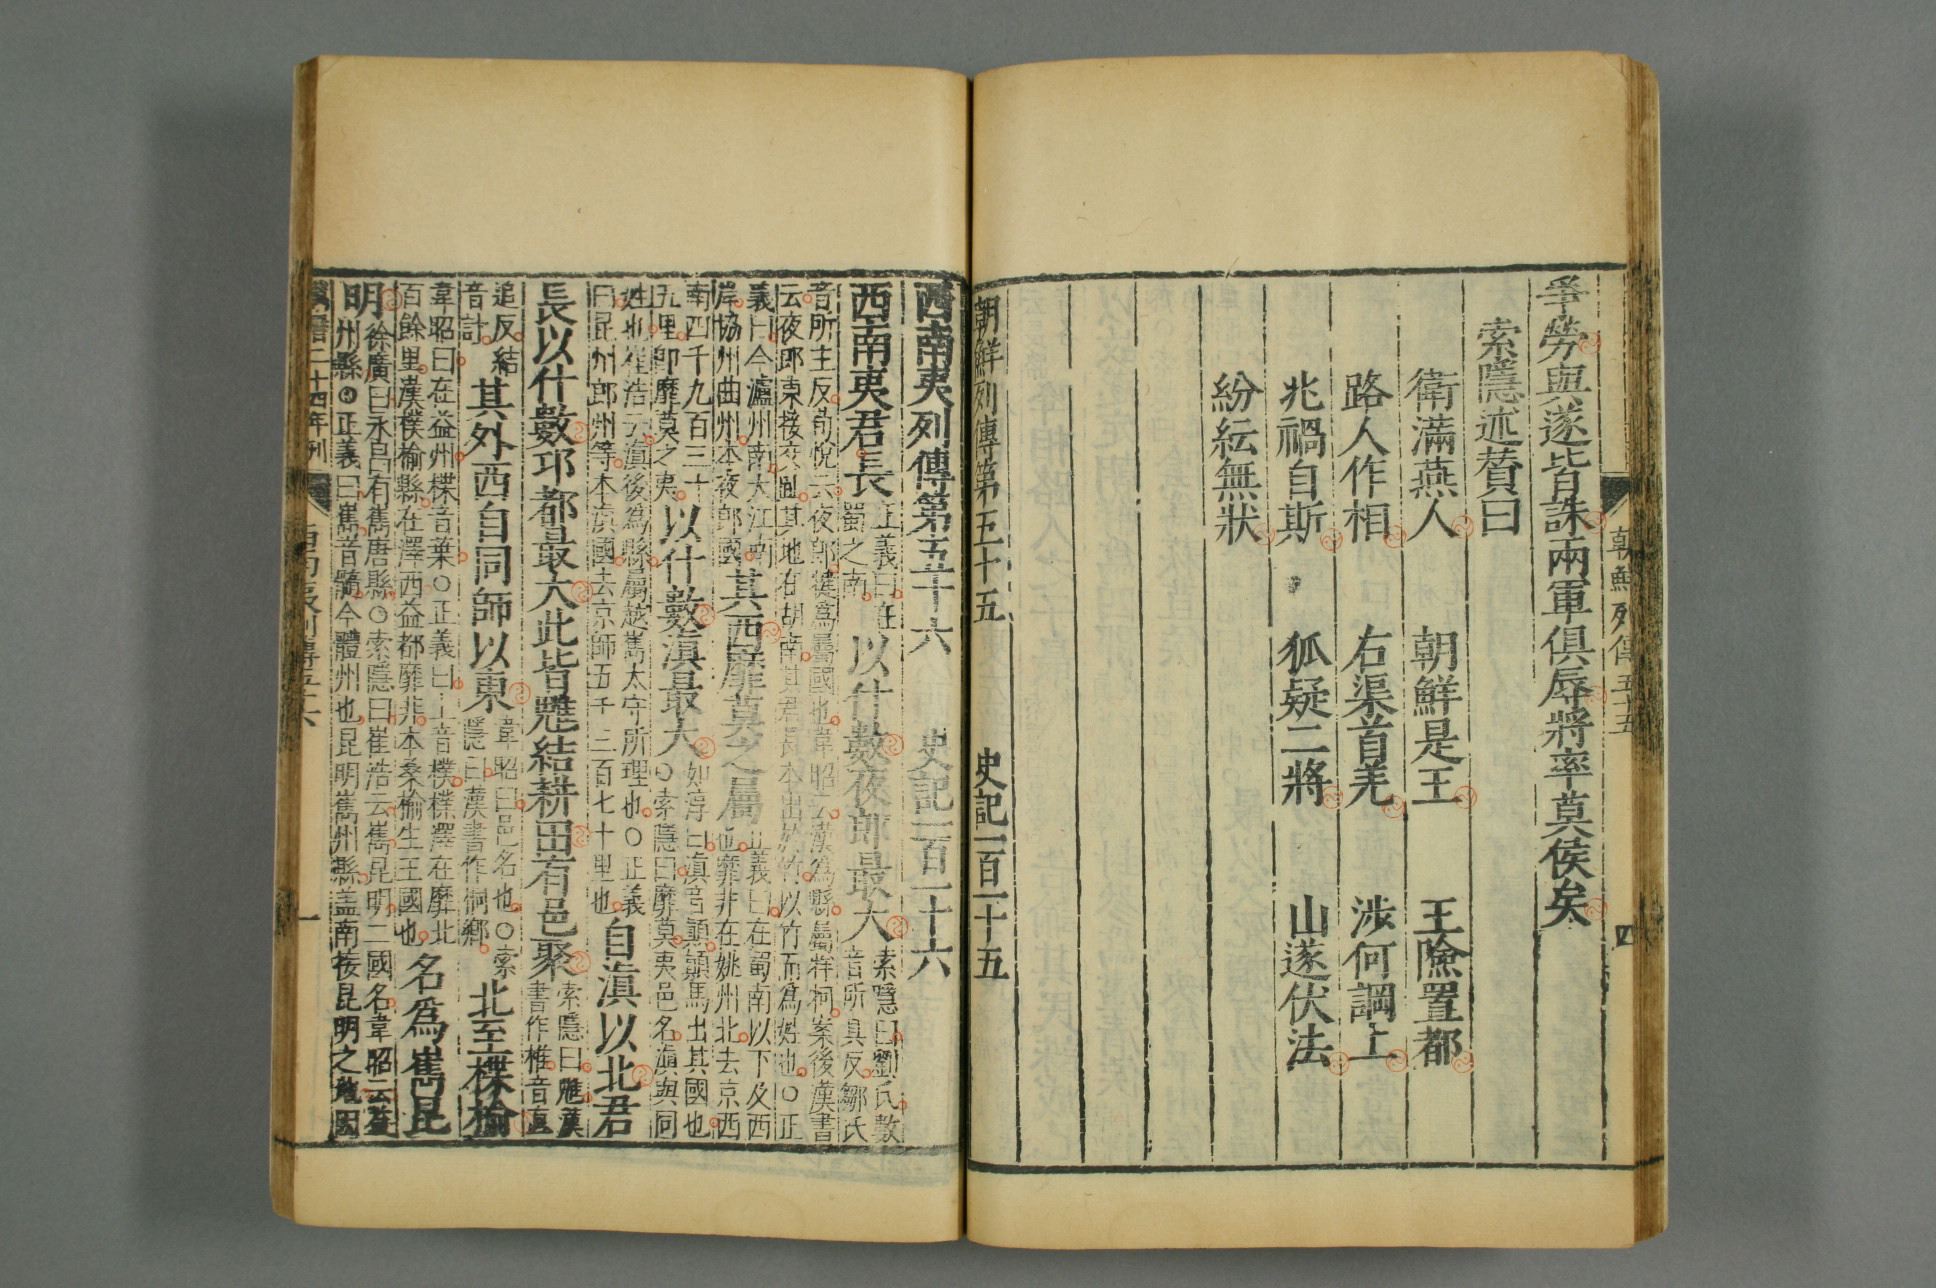 朝鮮列傳五十五
四
爭勞與遂皆誅兩軍俱辱將率莫侯矣
索隱述贊曰
衛滿燕人 朝鮮是王 王險置都
路人作相 右渠首羌 涉何調上
兆禍自斯 狐疑二將 山遂伏法
紛紜無狀
朝鮮列傳第五十五 史記一百一十五
西南夷列傳第五十六 史記一百一十六
西南夷君長
正義曰在
蜀之南
以什數夜郎最大
索隱曰劉氏數
音所具反鄒氏
音所主反荀悅云夜郎犍爲屬國也韋昭云漢爲縣屬牂柯案後漢書
云夜郎東接交趾其地在胡南其君長本出於竹以竹而爲姓也○正
義曰今瀘州南大江南
岸協州曲州本夜郎國
其西靡莫之屬
正義曰在蜀南以下及西
也靡非在姚州北去京西
南四千九百三十
五里卽靡莫之夷
以什數滇最大
如淳曰滇音顚顚馬出其國也
○索隱曰靡莫夷邑名滇與同
姓也崔浩云滇後爲縣屬越嶲太守所理也○正義
曰昆州郎州等本滇國去京師五千三百七十里也
自滇以北君
長以什數邛都最大此皆魋結耕田有邑聚
索隱曰魋漢
書作椎音直
追反結
音計
其外西自同師以東
韋昭曰邑名也○索
隱曰漢書作桐鄉
北至楪榆
韋昭曰在益州楪音葉○正義曰上音楪楪澤在靡北
百餘里漢楪榆縣在澤西益都靡非本桑榆生王國也
名爲嶲昆
明
徐廣曰永昌有嶲唐縣○索隱曰崔浩云嶲昆明二國名韋昭云益
州縣○正義曰嶲音髓今體州也昆明嶲州縣蓋南接昆明之地因
萬曆二十四年刊
西南夷列傳五十六
一